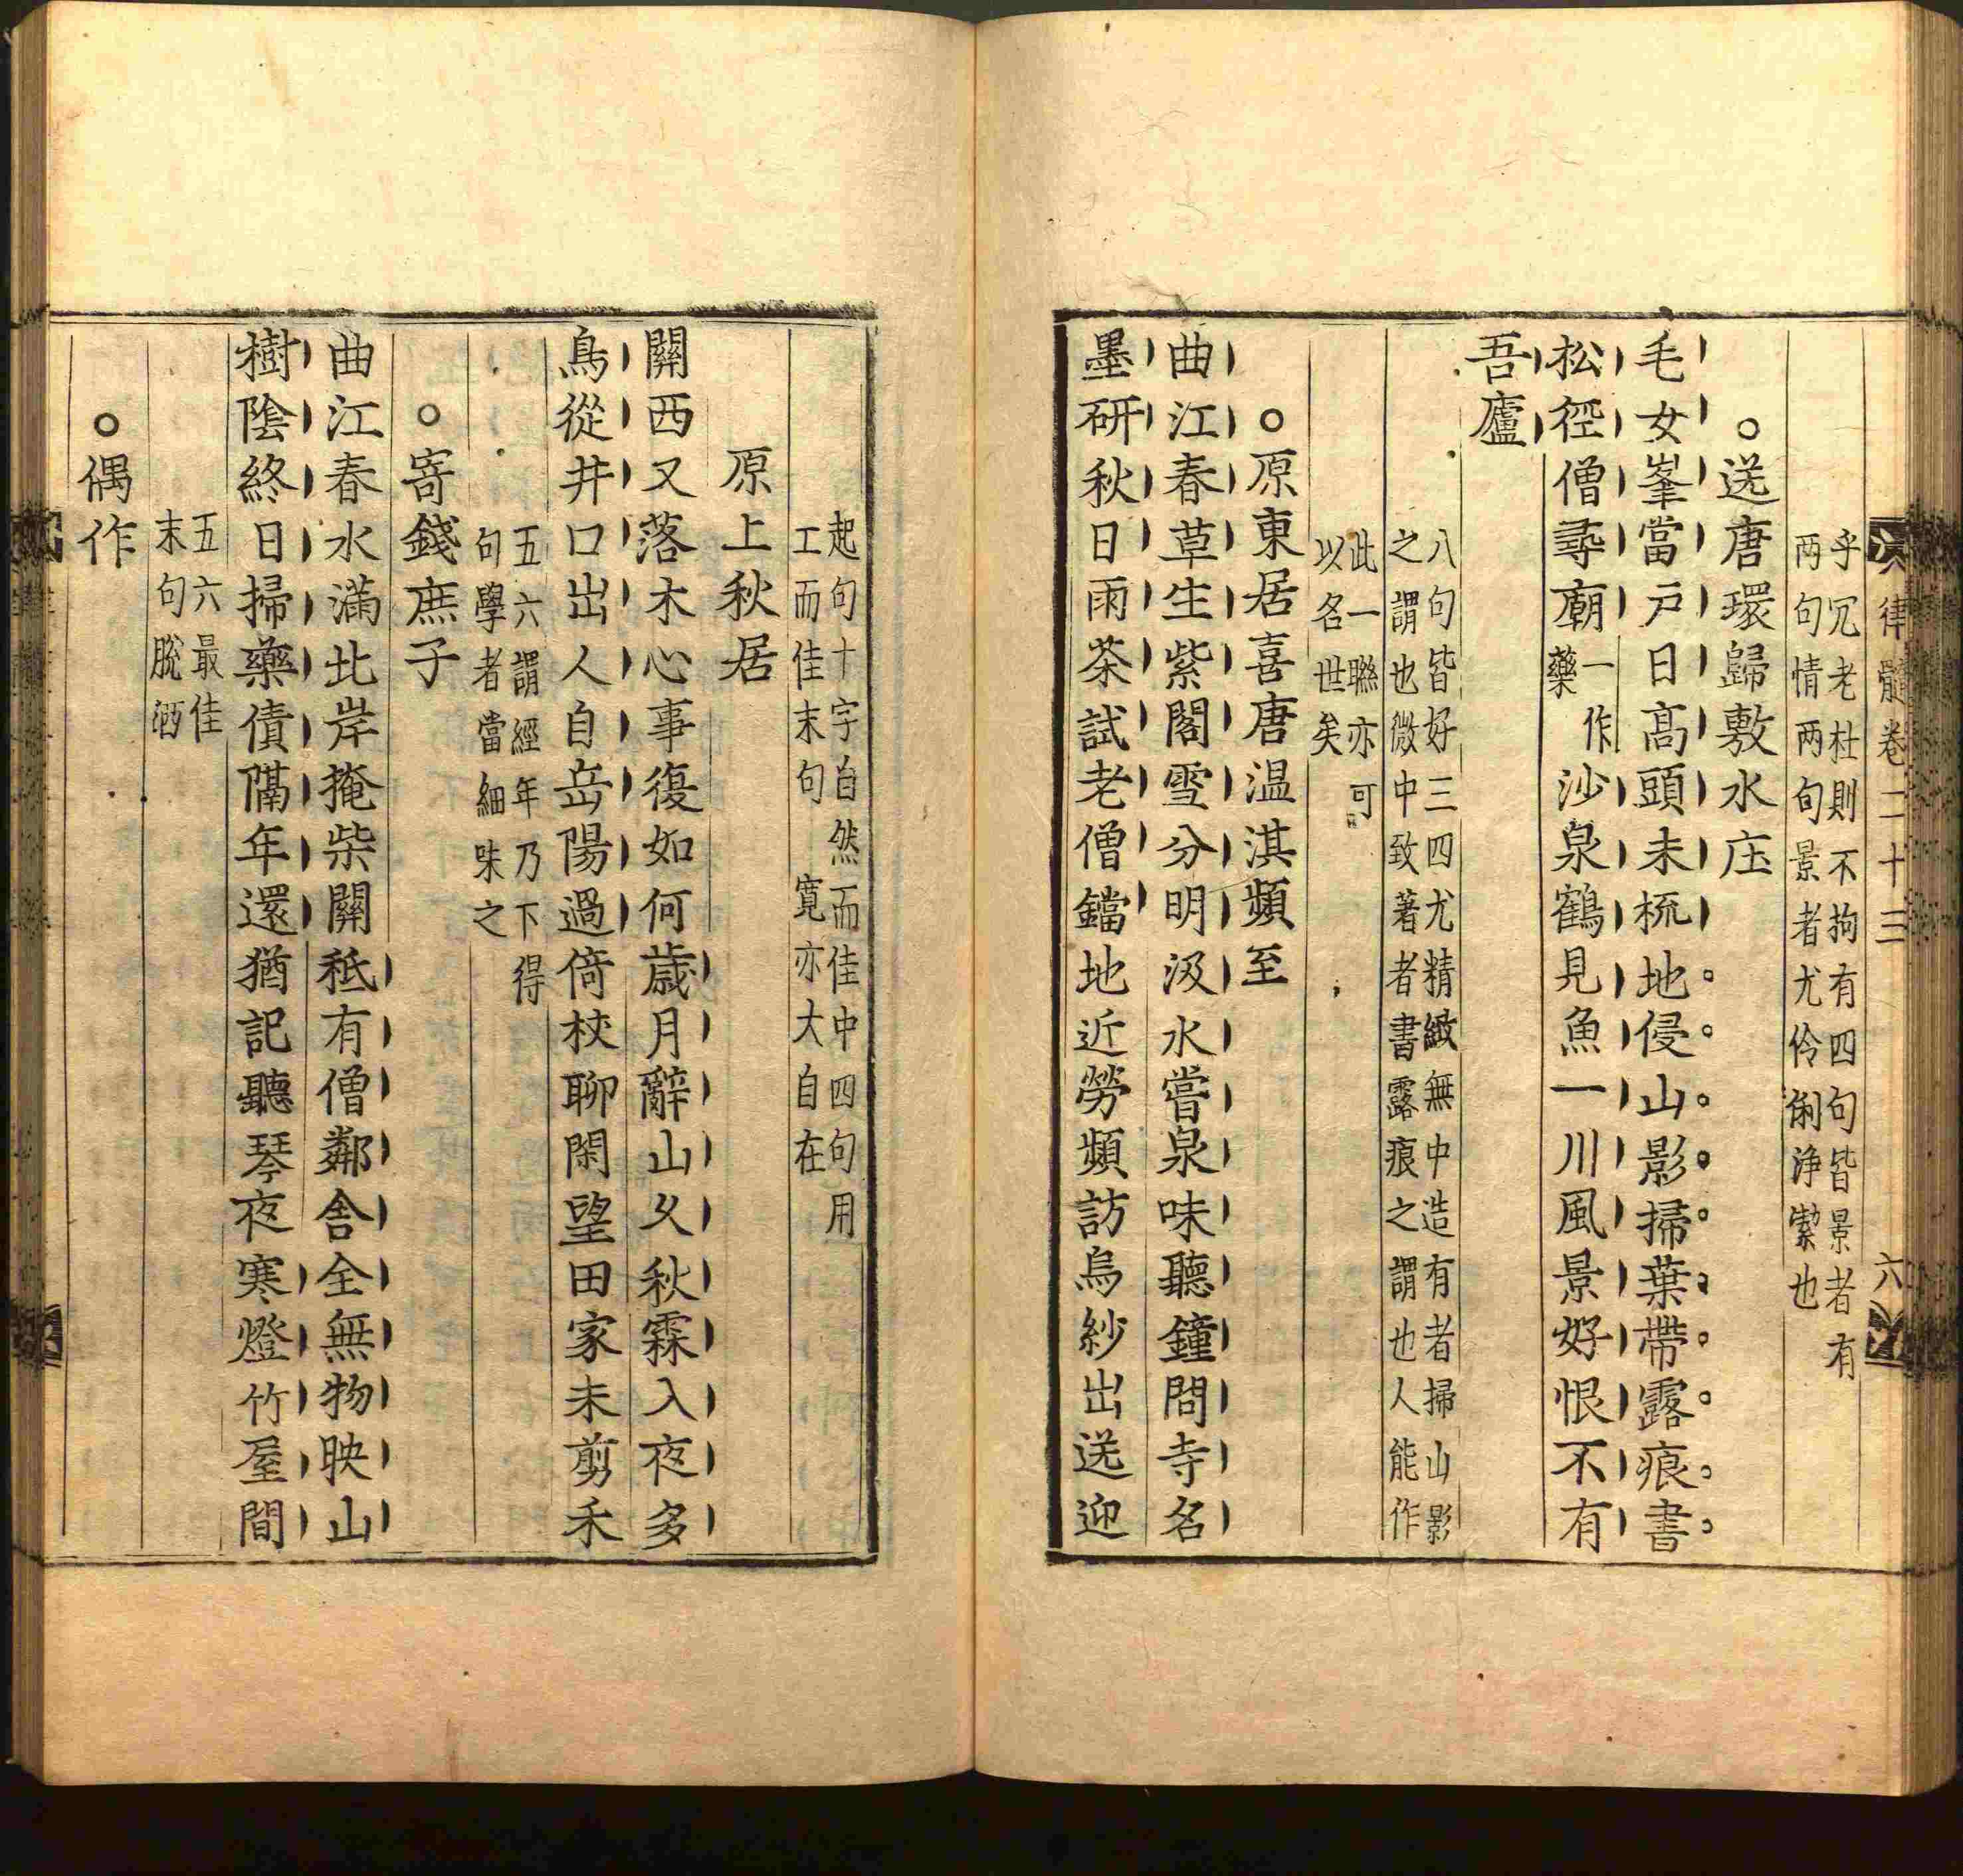 律髓卷二十三 六
乎冗老杜則不拘有四句皆景者有
两句情两句景者尤伶俐浄潔也
○送唐環歸敷水庄
毛女峯當戸日髙頭未梳地侵山影掃葉帶露痕書
松徑僧尋廟一作藥沙泉鶴見魚一川風景好恨不有
吾廬
八句皆好三四尤精緻無中造有者掃山影
之謂也微中致著者書露痕之謂也人能作
此一聯亦可
以名世矣
○原東居喜唐温淇頻至
曲江春草生紫閣雪分明汲水嘗泉味聽鐘問寺名
墨研秋日雨茶試老僧鐺地近勞頻訪烏紗出送迎
起句十字自然而佳中四句用
工而佳末句寛亦大自在
原上秋居
關西又落木心事復如何歳月辭山久秋霖入夜多
鳥從井口出人自岳陽過倚杖聊閑望田家未剪禾
五六謂經年乃下得
句學者當細味之
○寄錢庶子
曲江春水滿北岸掩柴關秖有僧鄰舎全無物映山
樹陰終日掃藥債隔年還猶記聽琴夜寒燈竹屋間
五六最佳
末句脫洒
○偶作